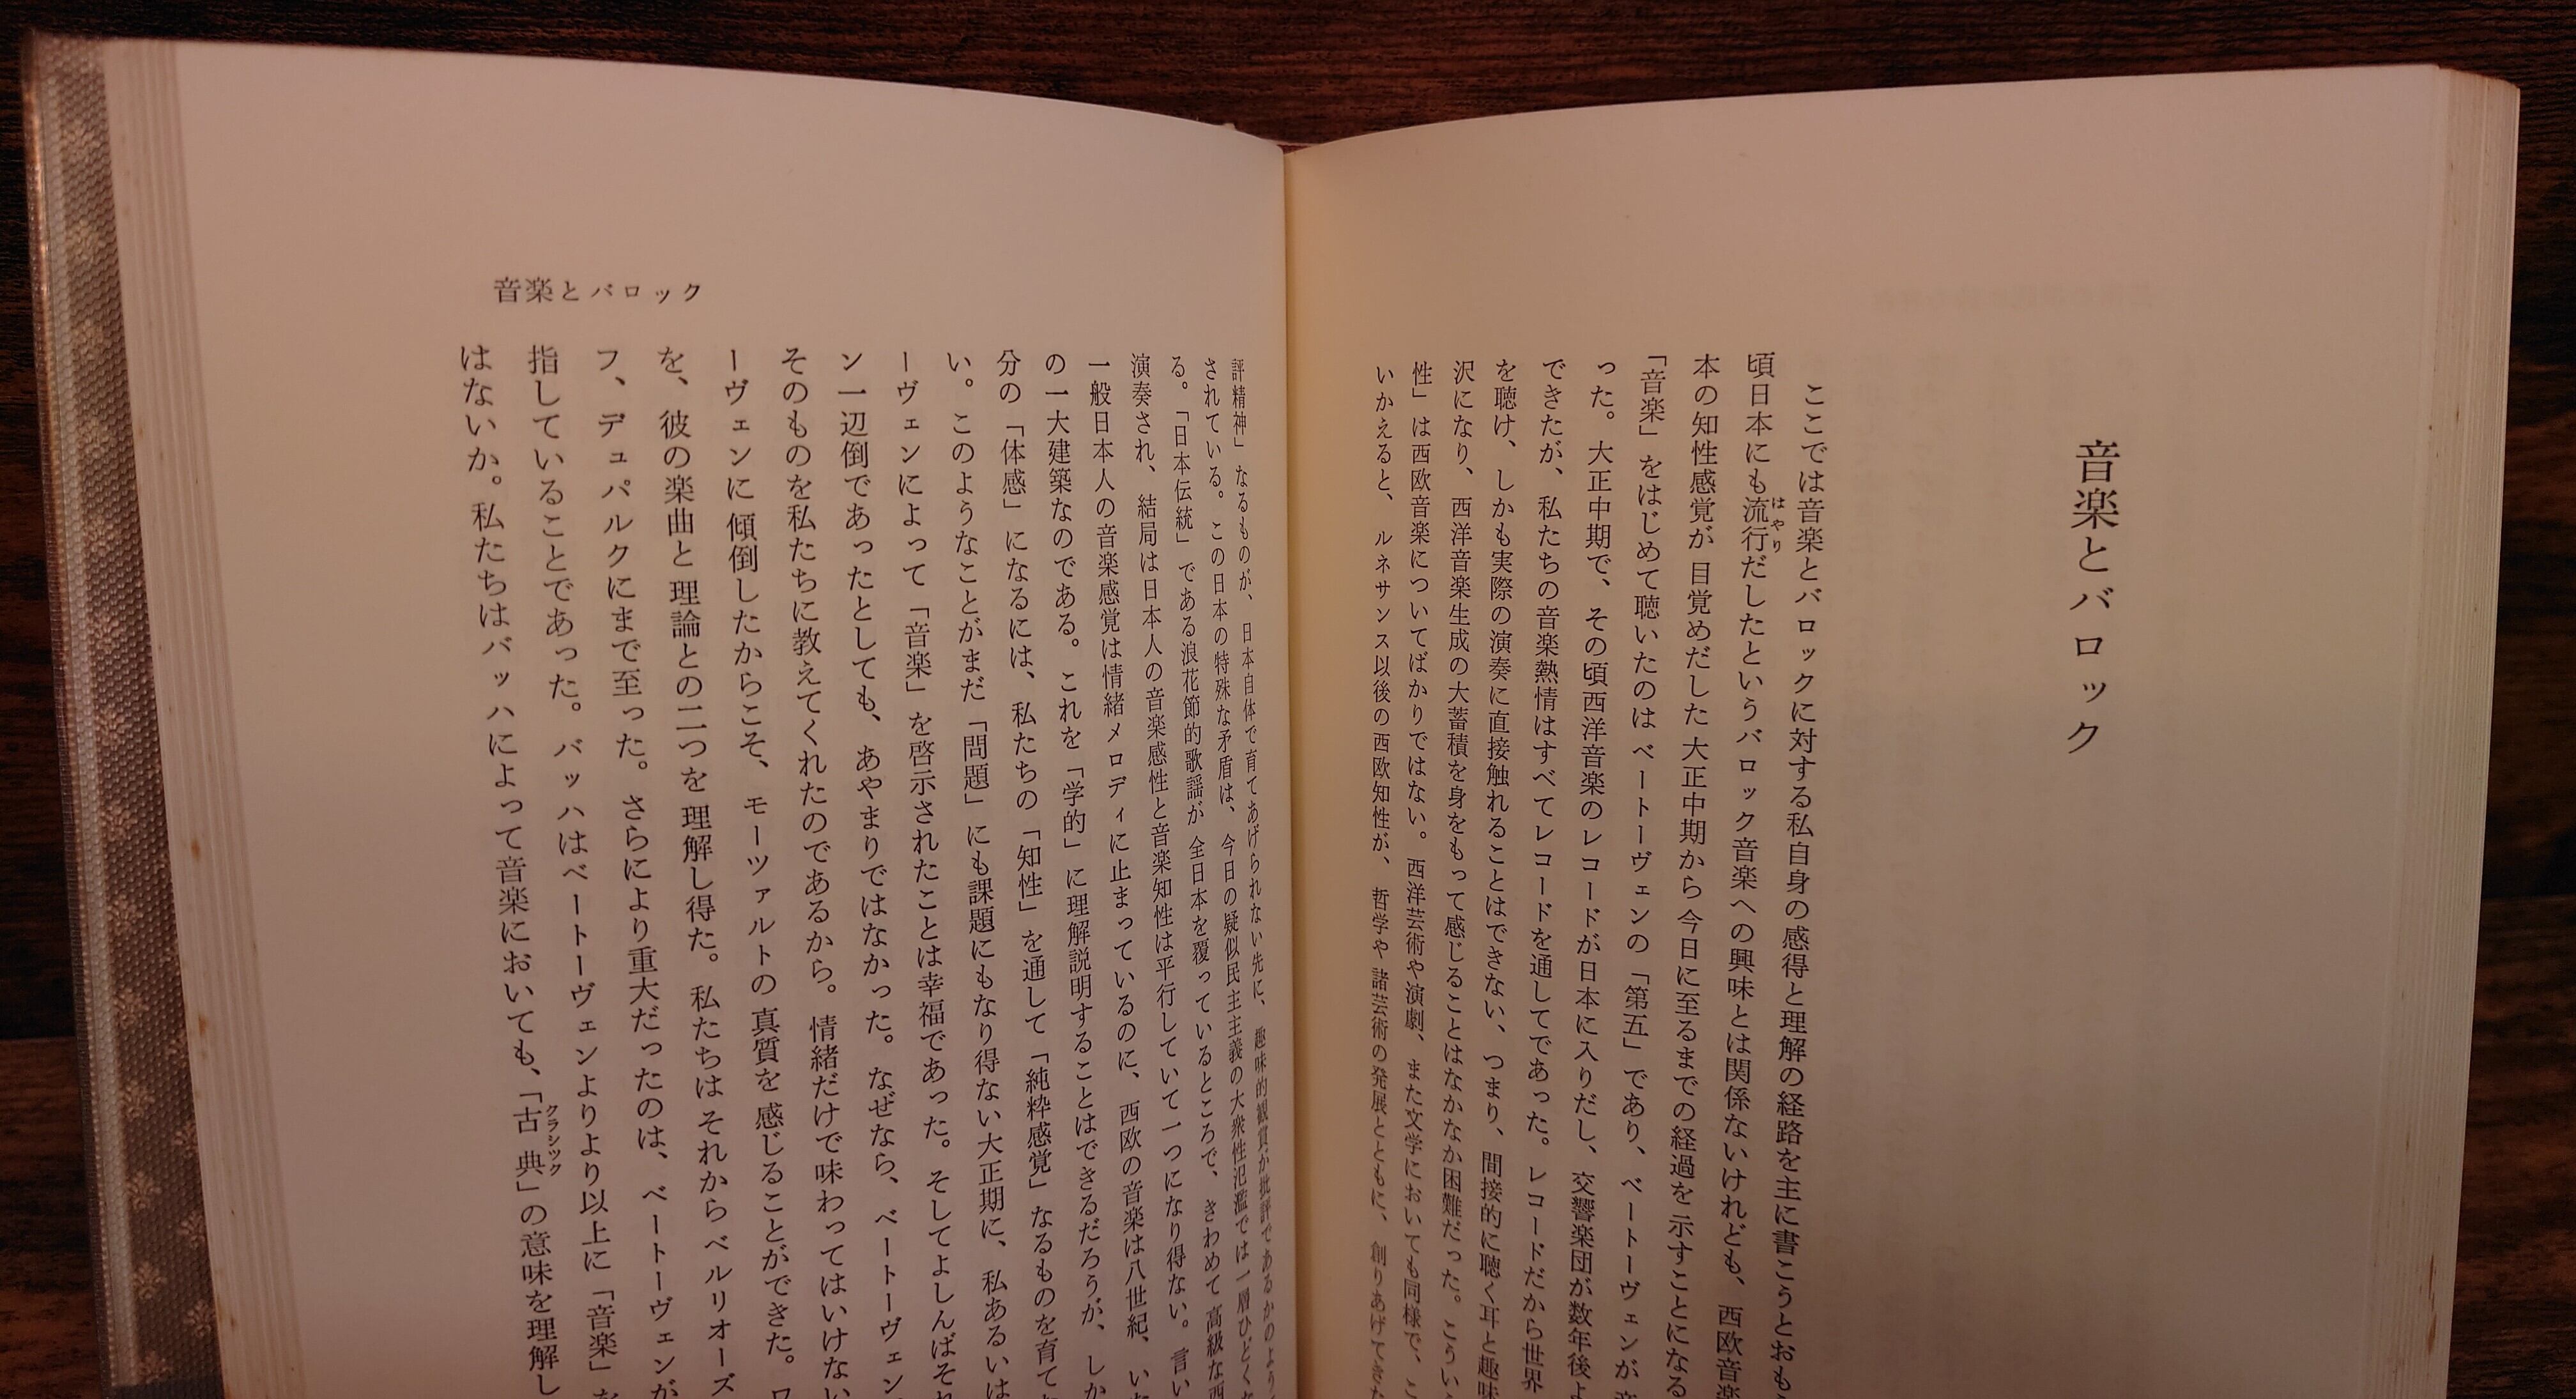 音楽とバロック
ここでは音楽とバロックに対する私自身の感得と理解の経路を主に書こうとおも
頃日本にも流行だしたというバロック音楽への興味とは関係ないけれども、西欧音
はやり
本の知性感覚が目覚めだした大正中期から今日に至るまでの経過を示すことになる
「音楽」をはじめて聴いたのはベートーヴェンの「第五」であり、ベートーヴェンが
った。大正中期で、その頃西洋音楽のレコードが日本に入りだし、交響楽団が数年後
できたが、私たちの音楽熱情はすべてレコードを通してであった。レコードだから世界
を聴け、しかも実際の演奏に直接触れることはできない、つまり、間接的に聴く耳と趣味
沢になり、西洋音楽生成の大蓄積を身をもって感じることはなかなか困難だった。こうい
性」は西欧音楽についてばかりではない。西洋芸術や演劇、また文学においても同様で、こ
いかえると、ルネサンス以後の西欧知性が、哲学や諸芸術の発展とともに、創りあげてきた
音楽とバロック
評精神」なるものが、日本自体で育てあげられない先に、趣味的観賞が批評であるかのよう
されている。この日本の特殊な矛盾は、今日の疑似民主主義の大衆性氾濫では一層ひどく
る。「日本伝統」である浪花節的歌謡が全日本を覆っているところで、きわめて高級な西
演奏され、結局は日本人の音楽感性と音楽知性は平行していて一つになり得ない。言い
一般日本人の音楽感覚は情緒メロディに止まっているのに、西欧の音楽は八世紀、い
の一大建築なのである。これを「学的」に理解説明することはできるだろうが、しか
分の「体感」になるには、私たちの「知性」を通して「純粋感覚」なるものを育て
い。このようなことがまだ「問題」にも課題にもなり得ない大正期に、私あるいは
ーヴェンによって「音楽」を啓示されたことは幸福であった。そしてよしんばそれ
ン一辺倒であったとしても、あやまりではなかった。なぜなら、ベートーヴェン
そのものを私たちに教えてくれたのであるから。情緒だけで味わってはいけない
ーヴェンに傾倒したからこそ、モーツァルトの真質を感じることができた。ワ
を、彼の楽曲と理論との二つを理解し得た。私たちはそれからベルリオーズ
フ、デュパルクにまで至った。さらにより重大だったのは、ベートーヴェンが
指していることであった。バッハはベートーヴェンよりより以上に「音楽」を
はないか。私たちはバッハによって音楽においても、「古典」の意味を理解し
クラシック